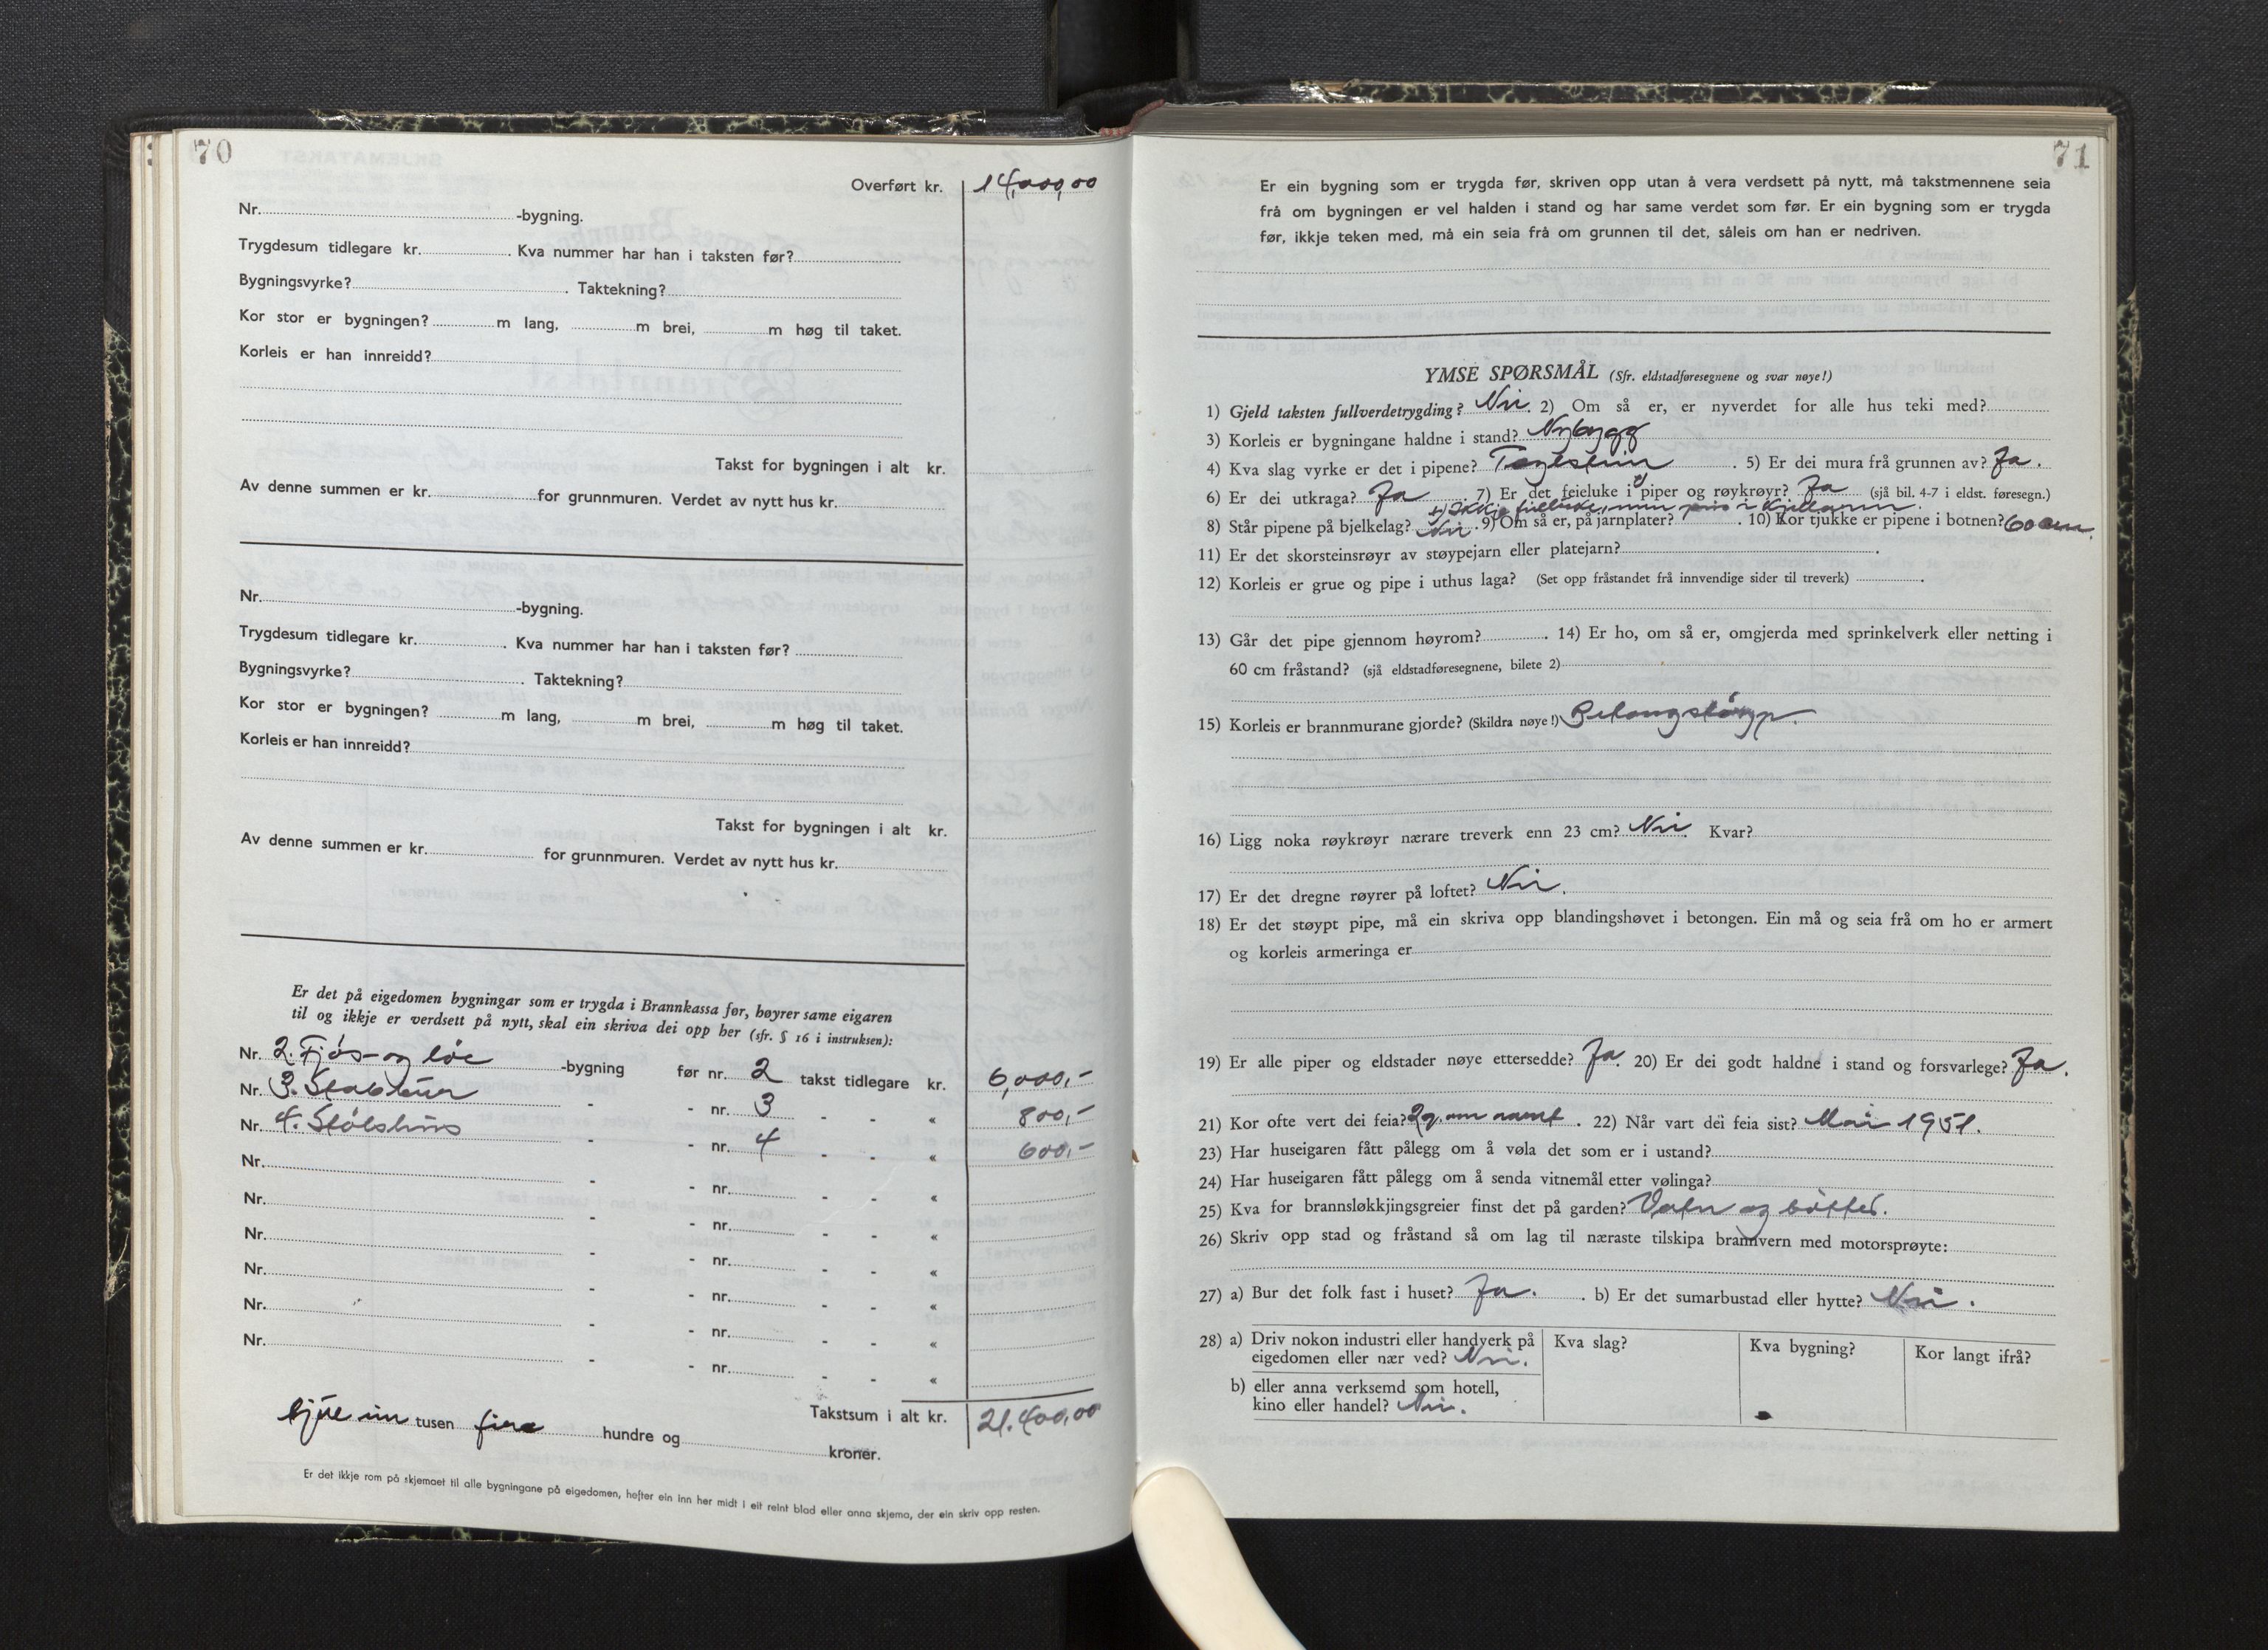 70
Overført kr. 14,000,00
Nr. -bygning.
Trygdesum tidlegare kr. . Kva nummer har han i taksten før?
Bygningsvyrke? . Taktekning?
Kor stor er bygningen? m lang, m brei, m høg til taket.
Korleis er han innreidd?
Takst for bygningen i alt kr.
Av denne summen er kr. for grunnmuren. Verdet av nytt hus kr.
Nr. -bygning.
Trygdesum tidlegare kr. . Kva nummer har han i taksten før?
Bygningsvyrke? . Taktekning?
Kor stor er bygningen? m lang, m brei, m høg til taket.
Korleis er han innreidd?
Takst for bygningen i alt kr.
Av denne summen er kr. for grunnmuren. Verdet av nytt hus kr.
Er det på eigedomen bygningar som er trygda i Brannkassa før, høyrer same eigaren
til og ikkje er verdsett på nytt, skal ein skriva dei opp her (sfr. § 16 i instruksen):
Nr. 2. Fjös- og löe -bygning før nr. 2 takst tidlegare kr. 6,000,-
Nr. 3. Stabbur - - nr. 3 - - « 800,-
Nr. 4. Stölshus - - nr. 4 - - « 600,-
Nr. - - nr. - - «
Nr. - - nr. - - «
Nr. - - nr. - - «
Nr. - - nr. - - «
Nr. - - nr. - - «
Nr. - - nr. - - «
Takstsum i alt kr. 21.400,00
tjue ein tusen fire hundre og kroner.
Er det ikkje rom på skjemaet til alle bygningane på eigedomen, hefter ein inn her midt i eit reint blad eller anna skjema, der ein skriv opp resten.
71
Er ein bygning som er trygda før, skriven opp utan å vera verdsett på nytt, må takstmennene seia
frå om bygningen er vel halden i stand og har same verdet som før. Er ein bygning som er trygda
før, ikkje teken med, må ein seia frå om grunnen til det, såleis om han er nedriven.
YMSE SPØRSMÅL (Sfr. eldstadføresegnene og svar nøye!)
1) Gjeld taksten fullverdetrygding? Nei. 2) Om så er, er nyverdet for alle hus teki med?
3) Korleis er bygningane haldne i stand? Nybygg
4) Kva slag vyrke er det i pipene? Teglstein . 5) Er dei mura frå grunnen av? Ja.
6) Er dei utkraga? Ja . 7) Er det feieluke i piper og røykrøyr? Ja (sjå bil. 4-7 i eldst. føresegn.)
Ikkje feieluke, men i kjellaren.
8) Står pipene på bjelkelag? Nei . 9) Om så er, på jarnplater? . 10) Kor tjukke er pipene i botnen? 60 cm.
11) Er det skorsteinsrøyr av støypejarn eller platejarn? .
12) Korleis er grue og pipe i uthus laga? (Set opp fråstandet frå innvendige sider til treverk) .
13) Går det pipe gjennom høyrom? . 14) Er ho, om så er, omgjerda med sprinkelverk eller netting i
60 cm fråstand? (sjå eldstadføresegnene, bilete 2)
15) Korleis er brannmurane gjorde? (Skildra nøye!) Betongstöyp.
16) Ligg noka røykrøyr nærare treverk enn 23 cm? Nei. Kvar?
17) Er det dregne røyrer på loftet? Nei.
18) Er det støypt pipe, må ein skriva opp blandingshøvet i betongen. Ein må og seia frå om ho er armert
og korleis armeringa er
19) Er alle piper og eldstader nøye ettersedde? Ja. 20) Er dei godt haldne i stand og forsvarlege? Ja.
21) Kor ofte vert dei feia? 2 g. um aaret . 22) Når vart dei feia sist? Mai 1951.
23) Har huseigaren fått pålegg om å vøla det som er i ustand?
24) Har huseigaren fått pålegg om å senda vitnemål etter vølinga?
25) Kva for brannsløkkjingsgreier finst det på garden? Vatn og bøtter.
26) Skriv opp stad og fråstand så om lag til næraste tilskipa brannvern med motorsprøyte:
27) a) Bur det folk fast i huset? Ja. . b) Er det sumarbustad eller hytte? Nei.
28) a) Driv nokon industri eller handverk på
eigedomen eller nær ved? Nei.
Kva slag? Kva bygning? Kor langt ifrå?
b) eller anna verksemd som hotell,
kino eller handel? Nei.